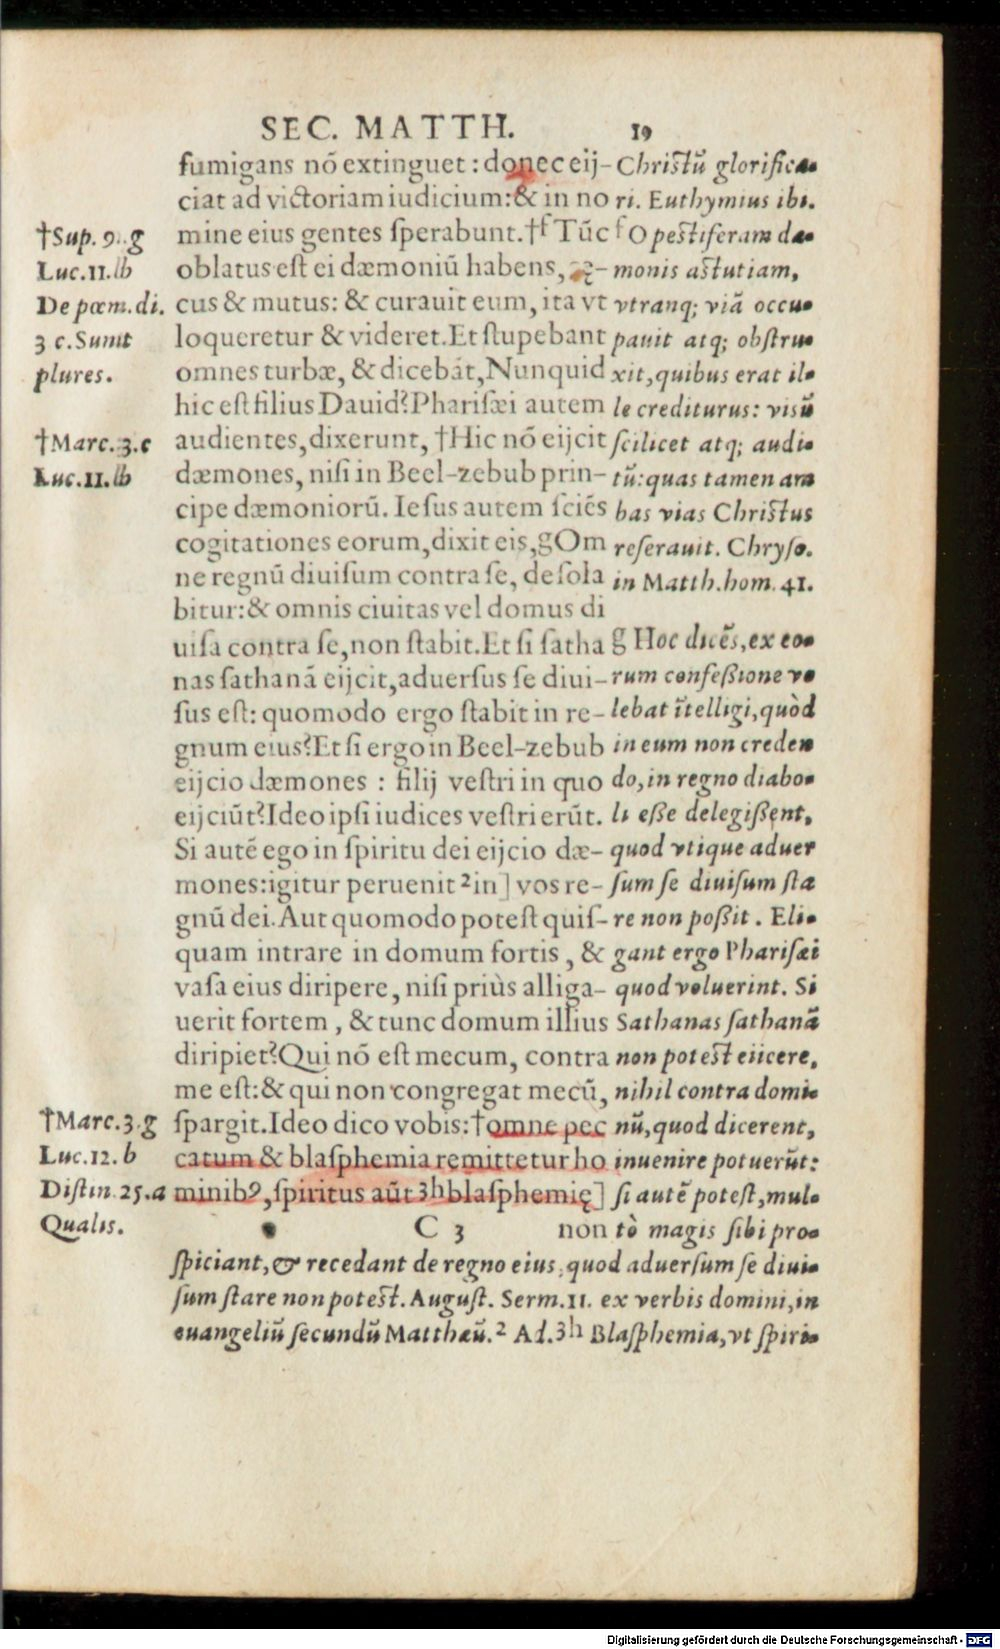 SEC. MATTH. 19
fumigans nõ extinguet : donec eij-
ciat ad victoriam iudicium:& in no
mine eius gentes ſperabunt.†f Tũc
oblatus eſt ei dæmoniũ habens, cę-
cus & mutus: & curauit eum, ita vt
loqueretur & videret.Et ſtupebant
omnes turbæ, & dicebãt, Nunquid
hic eſt filius Dauid? Phariſæi autem
audientes, dixerunt, †Hic nõ eijcit
dæmones, niſi in Beel-zebub prin-
cipe dæmoniorũ. Ieſus autem ſciẽs
cogitationes eorum, dixit eis, gOm
ne regnũ diuiſum contra ſe, deſola
bitur:& omnis ciuitas vel domus di
uiſa contra ſe, non ſtabit.Et ſi ſatha
nas ſathanã eijcit, aduerſus ſe diui-
ſus eſt: quomodo ergo ſtabit in re-
gnum eius? Et ſi ergo in Beel-zebub
eijcio dæmones : filij veſtri in quo
eijciũt? Ideo ipſi iudices veſtri erũt.
Si autẽ ego in ſpiritu dei eijcio dæ-
mones: igitur peruenit ²in] vos re-
gnũ dei. Aut quomodo poteſt quiſ-
quam intrare in domum fortis, &
vaſa eius diripere, niſi priùs alliga-
uerit fortem, & tunc domum illius
diripiet? Qui nõ eſt mecum, contra
me eſt:& qui non congregat mecũ,
ſpargit. Ideo dico vobis:†omne pec
catum & blaſphemia remittetur ho
minibꝰ, ſpiritus aũt ³hblaſphemię]
C 3 non
†Sup. 9. g
Luc.11.lb
De pœm.di.
3 c. Sunt
plures.
†Marc.3.c
Luc.11.lb
†Marc.3.g
Luc.12.b
Diſtin.25.a
Qualis.
Chriſtũ glorifica-
ri. Euthymius ibi.
f O peſtiferam dæ-
monis aſtutiam,
vtranq; viã occu-
pauit atq; obſtru-
xit, quibus erat il-
le crediturus: viſũ
ſcilicet atq; audi-
tũ: quas tamen am
bas vias Chriſtus
reſerauit. Chryſo.
in Matth.hom. 41.
g Hoc dicẽs, ex eo-
rum confeßione vo
lebat ĩtelligi, quòd
in eum non creden
do, in regno diabo-
li eße delegißent,
quod vtique aduer
ſum ſe diuiſum ſta
re non poßit. Eli-
gant ergo Phariſæi
quod voluerint. Si
Sathanas ſathanã
non poteſt eiicere,
nihil contra domi-
nũ, quod dicerent,
inuenire potuerũt:
ſi autẽ poteſt, mul-
tò magis ſibi pro-
ſpiciant, & recedant de regno eius, quod aduerſum ſe diui-
ſum ſtare non poteſt. Auguſt. Serm.11. ex verbis domini, in
euangeliũ ſecundũ Matthæũ.² Ad.³h Blaſphemia, vt ſpiri-
Digitalisierung gefördert durch die Deutsche Forschungsgemeinschaft - DFG